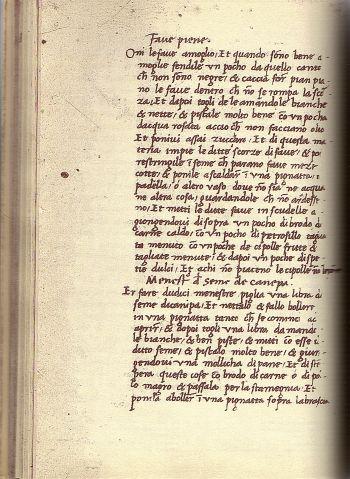 Fave piene.
Oni le fave amoglio, Et quando sōno bene a
moglie fendile vn pocho da quello canto
ch̄ non sono negre, & caccia for pian pia
no le fave dentro ch̄ nō se rompa la scor
za, Et dapoi togli de le amandole bianche
& nette, & pistale molto bene cō vn pocho
dacqua rosata accio ch̄ non facciano olio
Et ponivi assai zuccaro, Et di questa ma
teria impie le ditte scorze di fave, & po
restringile īseme ch̄ parano fave mezo
cotte, & ponile ascaldar ī vna pignatta, ī
padella, o altro vaso dove nō sia ne acqua
ne altra cosa, guardandole ch̄ nō ardesse
no, Et metti le ditte fave in scudelle a
giongendovi disopra vn pocho di brodo di
carne caldo, cō vn pocho di petrosillo taglia
to menuto cō vn poche de cipolle fritte &
tagliate menute, & dapoi vn poche di spe
tie dulci, Et achi nō piaceno le cipolle nō
Menestra d seme de canepa.
Et fare dudici menestre piglia vna libra d
seme dcanipa, Et nettalo & fallo bollire
in vna pignatta tanto ch̄ se cominci ad
aprir, & dapoi togli vna libra damando
le bianche, & ben piste, & muti cō esse il
ditto seme, & pistalo molto bene, & giun
gendovi vna mollicha di pane, Et distem
pera queste cose cō brodo di carne o di po
lo magro & passala per la stamegnia, Et
ponila abollir ī vna pignatta sopra la brascia